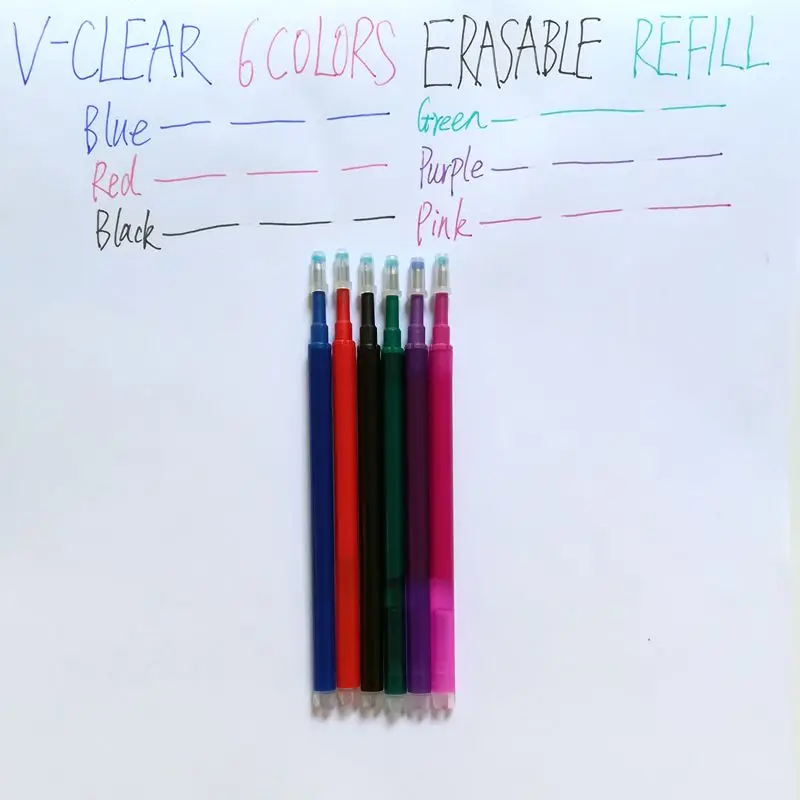 V-CLEAR 6 COLORS ERASABLE REFILL
Blue
Red
Black
Green
Purple
Pink